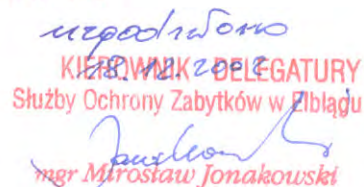 uzgodniono
KIEROWNIK DELEGATURY
18.12.2002
Służby Ochrony Zabytków w Elblągu
mgr Mirosław Jonakowski